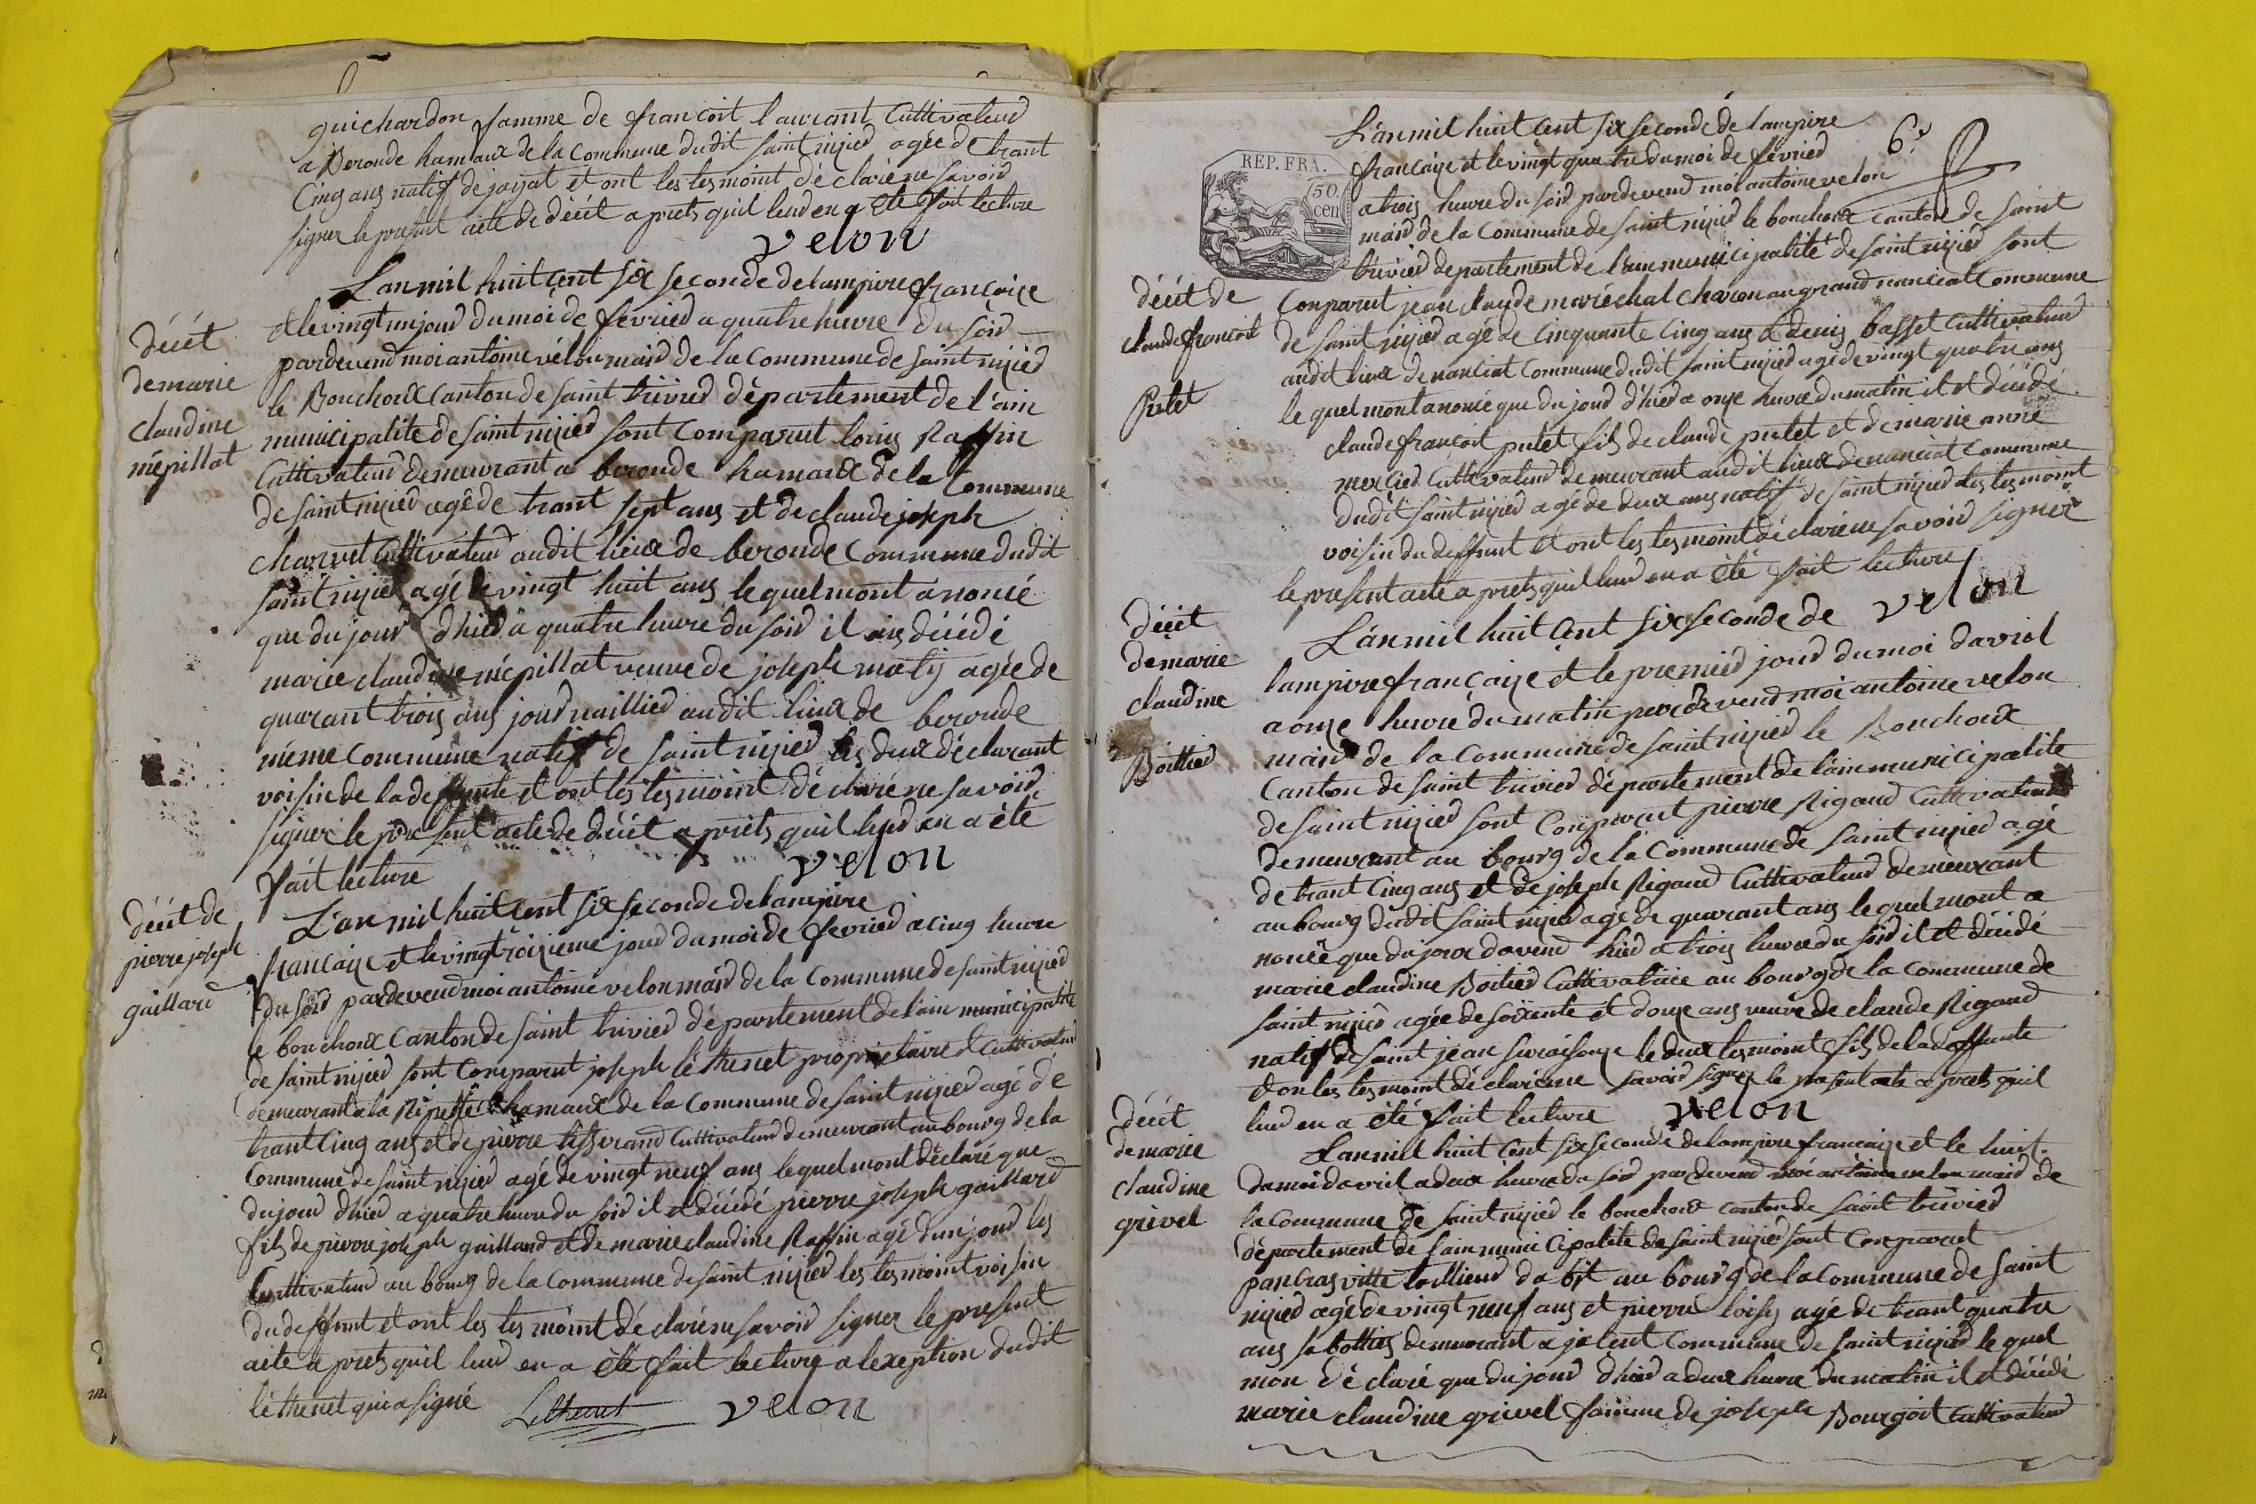 guichardon famme de francoit laurant Cultivateur
a Beronde hamaux de la Commune dudit saint nizier agée de trant
Cinq ans natif de jayat et ont les tesmoint déclaré ne savoir
signer le présent acte de décét a prets quil leur en a été fait lecture
velon
décét
de marie
claudine
mépillat
L'an mil huit cent six seconde de lampire françaize
et le vingt un jour du moi de février a quatre heure du soir
pardevend moi antoine vélon mair de la Commune de saint nizier
le Bouchoux Canton de saint trivier département de l'ain
municipalite de saint nizier sont Comparut louis Raffin
Cultivateur demeurant a beronde hamaux de la Commune
de saint nizier agé de trant sept ans et de claude joseph
charvet Cultivateur audit lieux de beronde Commune dudit
saint nizier agé de vingt huit ans le quel mont anoncé
que du jour d'hier a quatre heure du soir il ais décédé
marie claudine mépillat veuve de joseph maty agée de
quarant trois ans journaillier audit lieux de beronde
méme Commune natif de saint nizier les deux déclarant
voisin de la deffunte et ont les tesmoint déclaré ne savoir
signer le présent acte de décét a prets quil leur en a été
fait lecture
velon
décét de
pierre joseph
gaillard
L'an mil huit cent six seconde de lampire
françaize et le vingt troizieme jour du moi de fevrier a cinq heure
du soir pardevend moi antoine velon mair de la Commune de saint nizier
le bouchoux Canton de saint trivier département de l'ain municipalite
de saint nizier sont Comparut joseph léthenet propriétaire et Cultivateur
demeurant a la hamaux de la Commune de saint nizier agé de
trant Cinq ans et de pierre tisserand Cultivateur demeurant au bourg de la
Commune de saint nizier agé de vingt neuf ans le quel mont déclaré que
du jour d'hier a quatre heure du soir il et décédé pierre joseph gaillard
fils de pierre joseph gaillard et de marie claudine Raffin agé d'un jour les
Cultivateur au bourg de la Commune de saint nizier les tesmoint voisin
du deffunt et ont les tesmoint déclaré ne savoir signer le présent
acte a prets quil leur en a été fait lecture a lexeption dudit
léthenet qui a signé Lethenet velon
6e
REP. FRA.
50
cen
L'an mil huit cent six seconde de lampire
françaize et le vingt quatre du moi de fevrier
a trois heure du soir pardevend moi antoine velon
mair de la Commune de saint nizier le bouchoux canton de saint
trivier departement de l'ain municipalité de saint nizier sont
décét de
claude francoit
Putet
Conparut jean claude maréchal charon au grand nanciat Commune
de saint nizier agé de Cinquante Cinq ans et denis basset Cultivateur
audit lieux de nanciat Commune dudit saint nizier agé de vingt quatre ans
le quel mont anoncé que du jour d'hier a onze heure du matin il et décédé
claude francoit putet fils de claude putet et de marie anne
mercier Cultivateur demeurant audit lieux de nanciat Commune
dudit saint nizier agé de deux ans natif de saint nizier les tesmoint
voisin du deffunt et ont les tesmoint déclaré ne savoir signer
le présent acte a prets quil leur en a été fait lecture
velon
décét
de marie
claudine
Boittier
L'an mil huit cent six seconde de
lampire françaize et le premier jour du moi davril
a onze heure du matin pardevend moi antoine velon
mair de la Commune de saint nizier le Bouchoux
Canton de saint trivier département de l'ain municipalite
de saint nizier sont Conparut pierre Rigaud Cultivateur
demeurant au bourg de la Commune de saint nizier agé
de trant Cinq ans et de joseph Rigaud Cultivateur demeurant
au bourg dudit saint nizier agé de quarant ans le quel mont a
noncé que du jour davend hier a trois heure du soir il et décédé
marie claudine Boitier Cultivatrice au bourg de la commune de
saint nizier agée de soixente et douze ans veuve de claude Rigaud
natif de saint jean le deux tesmoint fils de la deffunte
et on les tesmoint déclaré ne savoir signer le présent acte a prets quil
leur en a été fait lecture velon
décét
de marie
claudine
grivel
L'an mil huit Cent six seconde de lampire françaize et le huit
du moi davril a deux heure du soir pardevend moi antoine velon mair de
la Commune de saint nizier le bouchoux canton de saint trivier
département de l'ain municipalite de saint nizier sont Conparut
pancras vitte tallieur dabit au bourg de la Commune de saint
nizier agé de vingt neuf ans et pierre loisy agé de trant quatre
ans sabottier demeurant a jalent Commune de saint nizier le quel
mon déclaré que du jour d'hier a deux heure du matin il et décédé
marie claudine grivel famme de joseph Bourgoit Cultivateur